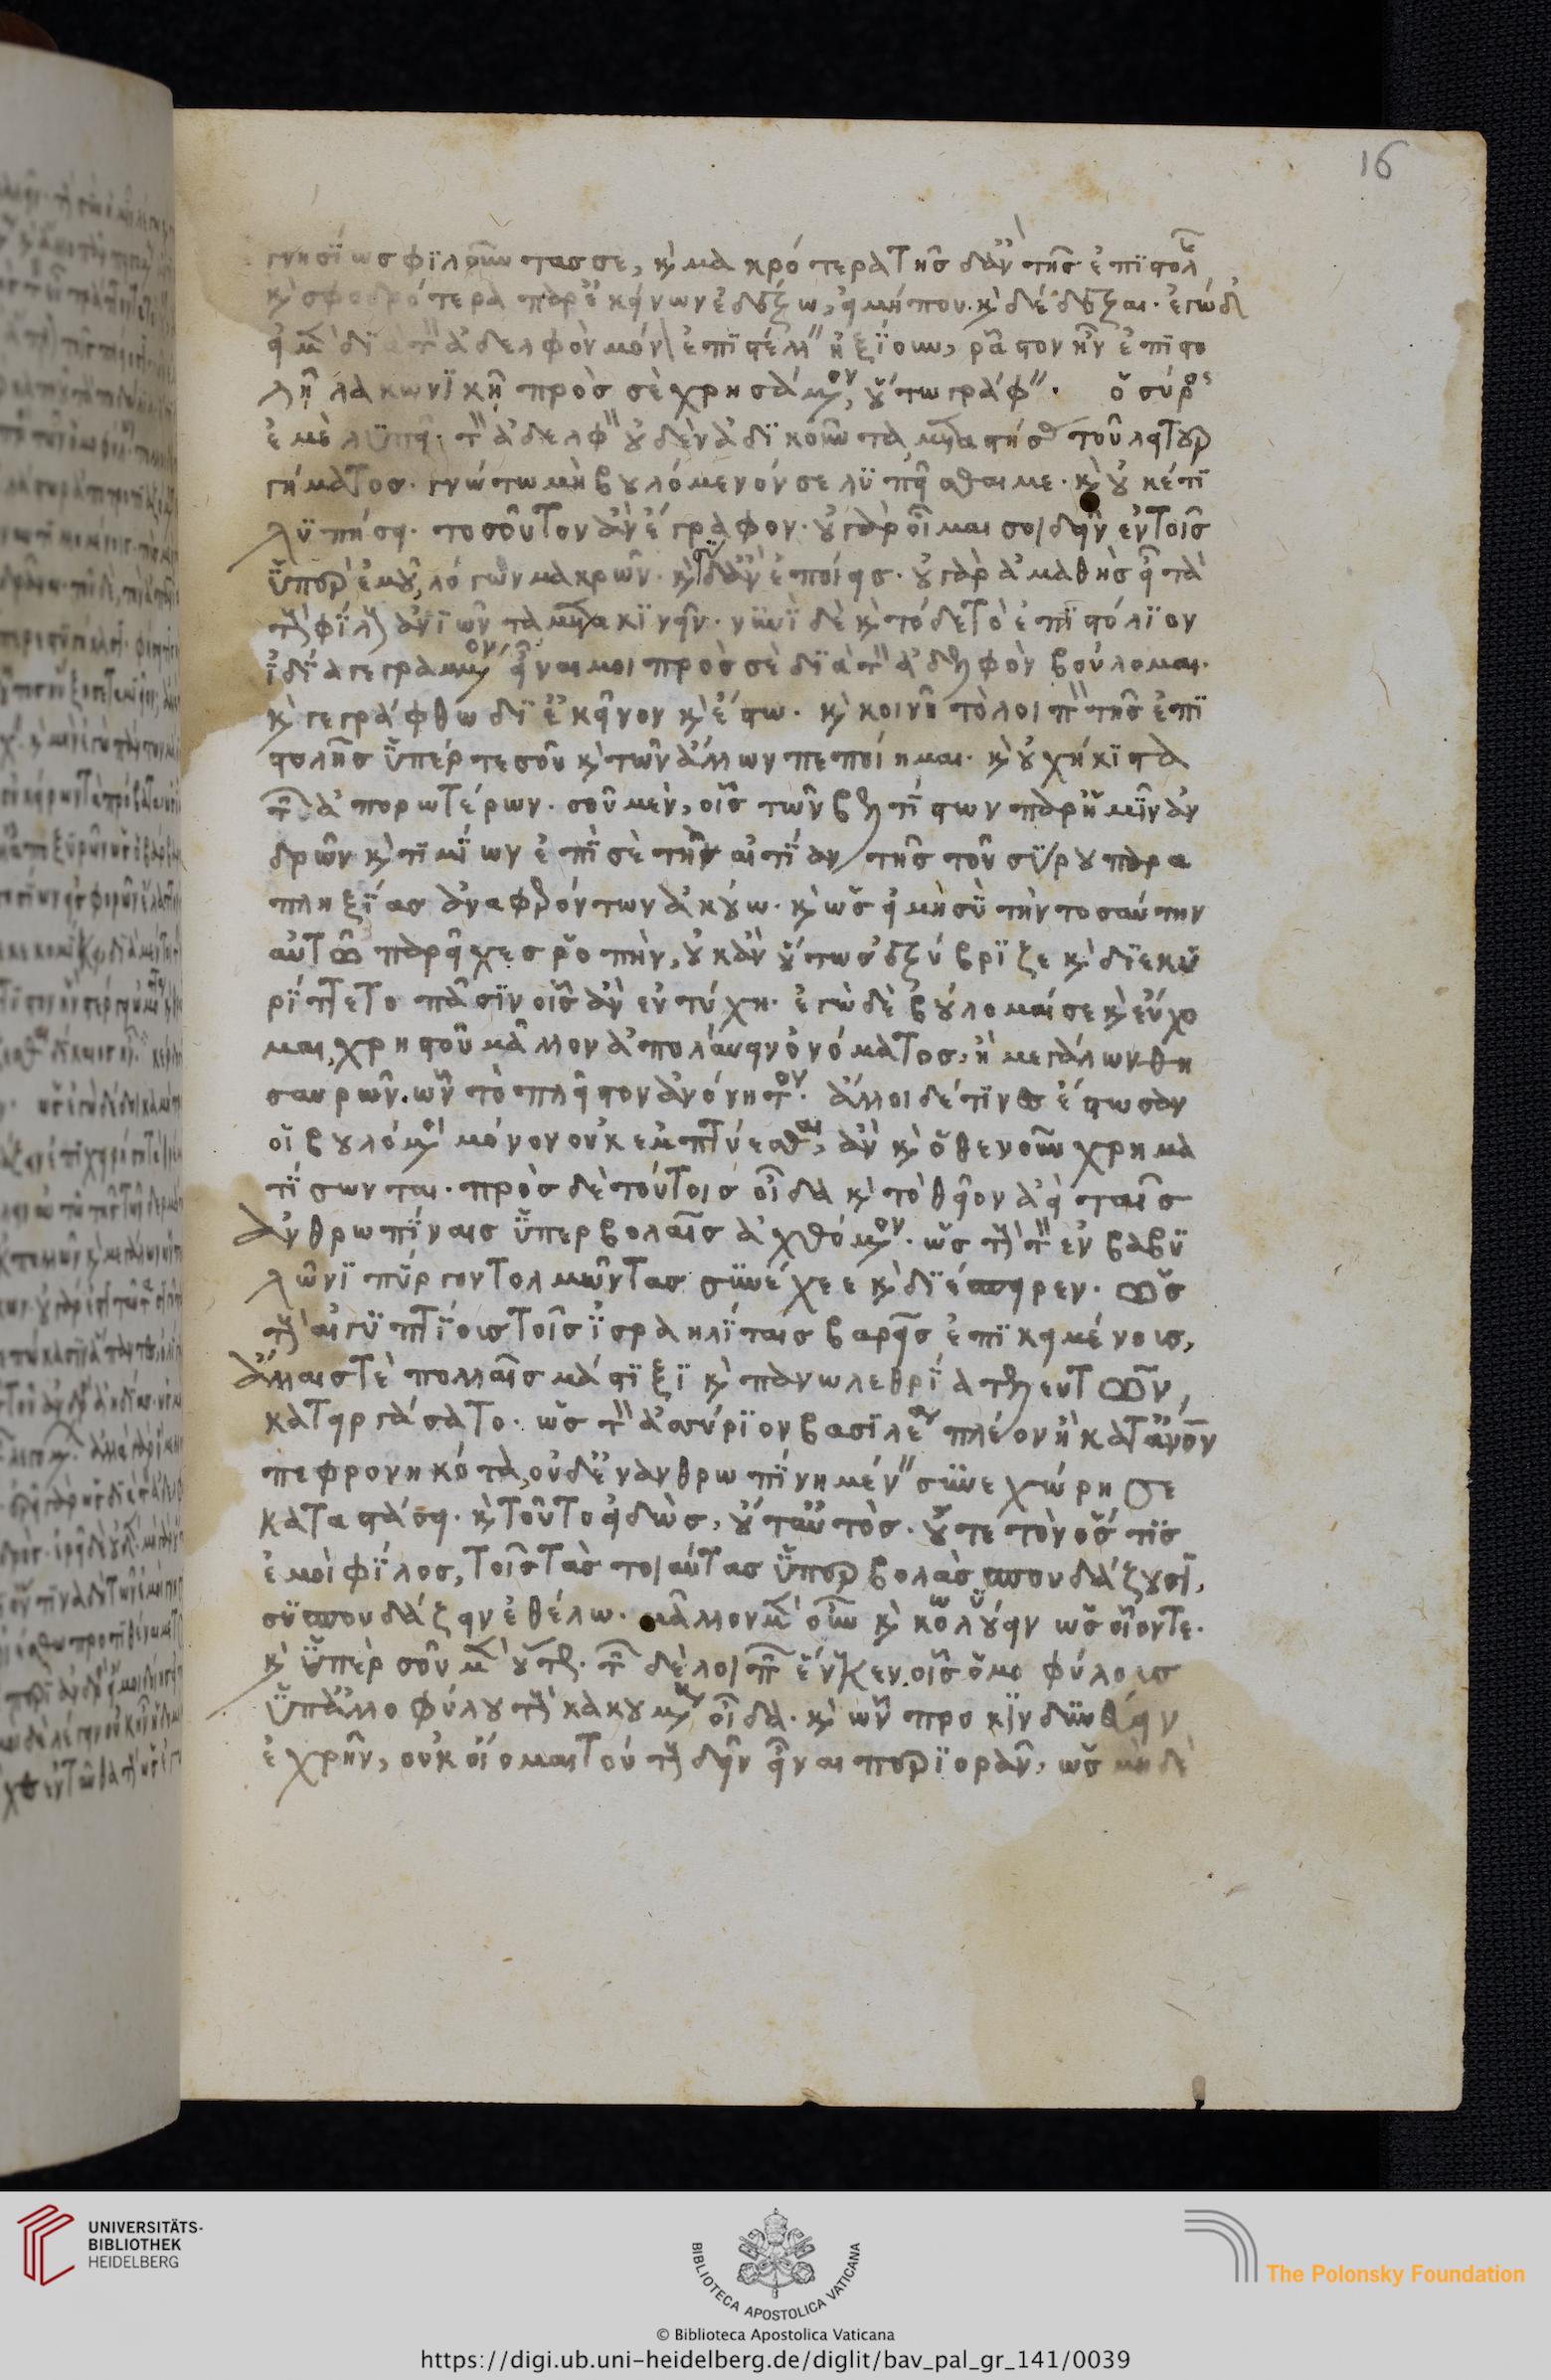 16
γνησίως φιλοῦντας σε, κὶ μακρότερα τῆς δ' ἂν τῆς ἐπιστολ
κὶ σφοδρότερα παρ' ἐκείνων ἐδεξω, εἰ μήπου κὶ δέδεξαι. ἐγὼ δ
εἰ μὲν δι τὸν ἀδελφὸν μόνον ἐπιστέλλειν ἠξίουν, ῥᾷστον ἦν ἐπιστο
λῇ λακωνικῇ πρὸς σὲ χρησάμενον, οὕτω γράφειν. ὁ σύρος
ἐμὲ λυπεῖ. τὸν ἀδελφὸν οὐδὲν ἀδικοῦντα τοῦ λειτουρ
γήματος. γνώτω μὴ βουλόμενόν σε λυπεῖσθαι με. κὶ οὐκέτι
λυπήσει. τοσοῦτον ἂν ἔγραφον. οὐ γὰρ οἶμαι σοι δεῖν ἐν τοῖς
ὑπὲρ ἐμοῦ, λόγων μακρῶν. κὶ ἂν ἐποίεις. οὐ γὰρ ἀμαθὴς εἶ τὰ
τῶν φίλων ἀνιῶν τα κινεῖν. νυνὶ δὲ κὶ τόδε τὸ ἐπιστόλιον
ἰδίᾳ γεγραμμένον εἶναι μοι πρὸς σὲ διὰ τὸν ἀδελφὸν βούλομαι.
κὶ γεγράφθω δι' ἐκεῖνον κὶ ἔστω. κὶ κοινῇ τὸ λοιπὸν τῆς ἐπι
στολῆς ὑπέρ τε σοῦ κὶ τῶν ἄλλων πεποίημαι. κὶ οὐχ ἥκιστα
τῶν ἀπορωτέρων. σοῦ μὲν, οἷς τῶν βελτίστων παρ' ἡμῖν ἀν
δρῶν κὶ τιμίων ἐπὶ σὲ τὴν αἰτίαν τῆς τοῦ σύρου παρα
πληξίας ἀναφερόντων ἀκούω. κὶ ὡς εἰ μὴ σὺ τὴν τοσαύτην
αὐτῷ παρεῖχες ῥοπὴν, οὐκ ἂν οὕτως ἐξύβριζε κὶ διεκω
ρίπτετο πᾶσιν οἷς ἂν ἐντύχῃ. ἐγὼ δὲ βούλομαί σε κὶ εὔχο
μαι, χρηστοῦ μᾶλλον ἀπολαύειν ὀνόματος, ἢ μεγάλων θη
σαυρῶν. ὧν τὸ πλεῖστον ἀνόνητον. ἄλλοι δέ τινες ἔστωσαν
οἱ βουλόμενοι μόνον οὐκ ἐμπτύεσθαι, ἂν κὶ ὅθεν οὖν χρημα
τίσωνται. πρὸς δὲ τούτοις οἶδα κὶ τὸ θεῖον ἀεὶ ταῖς
ἀνθρωπίναις ὑπερβολαῖς ἀχθόμενον. ὡς τῶν τὸν ἐν βαβυ
λῶνι πύργον τολμῶντας συνέχεε κὶ διέσπειρεν. ὡς
τῶν αἰγυπτίοις τοῖς ἰσραηλίταις βαρεῖς ἐπικειμένοις,
ἄλλαις τὲ πολλαῖς μάστιξι κὶ πανωλεθρίᾳ τελευτῶν,
κατειργάσατο. ὡς τὸν ἀσσύριον βασιλέα πλέον ἢ κατ' ἄνον
πεφρονηκότα, οὐδ' ἐν ἀνθρωπίνῃ μένειν συνεχώρησε
καταστάσει. κὶ τοῦτο εἰδὼς, οὔτ' αὐτὸς. οὔτε τὸν ὅστις
ἐμοὶ φίλος, τοῖς τὰς τοιαύτας ὑπερβολὰς σπουδάζουσι,
συσπουδάζειν ἐθέλω. μᾶλλον μὲν οὖν κὶ κωλύειν ὡς οἷόν τε.
κὶ ὑπὲρ σοῦ μὲν οὕτω. τῶν δὲ λοιπῶν ἕνεκεν. οἷς ὁμοφύλοις
ὑπ' ἀλλοφύλου τῶν κακουμένοις οἶδα. κὶ ὧν προκινδυνεύειν
ἐχρῆν, οὐκ οἴομαι τούτων δεῖν εἶναι περιορᾶν, ὡς μηδὲ
UNIVERSITÄTS-
BIBLIOTHEK
HEIDELBERG
BIBLIOTECA APOSTOLICA VATICANA
The Polonsky Foundation
© Biblioteca Apostolica Vaticana
https://digi.ub.uni-heidelberg.de/diglit/bav_pal_gr_141/0039